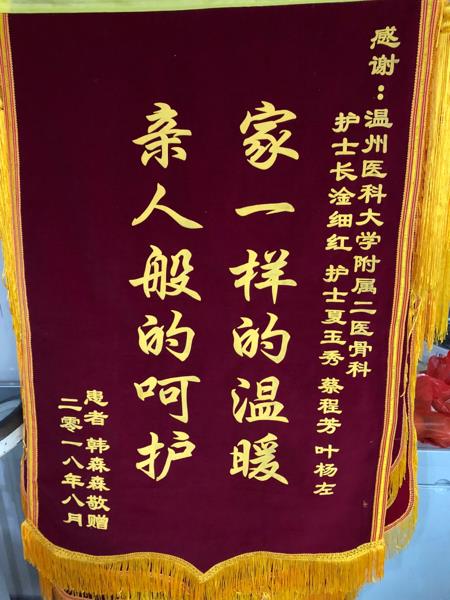 感谢：温州医科大学附属二医骨科
护士长淦细红 护士夏玉秀 蔡程芳 叶杨左
家一样的温暖
亲人般的呵护
患者 韩森森敬赠
二零一八年八月